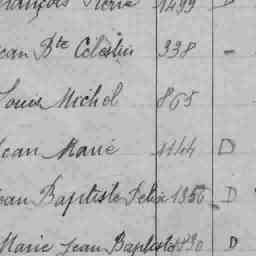 François Pierre 1499 D
Jean Bte Célestin 938 -
Louis Michel 865
Jean Marie 1144 D
Jean Baptiste Félix 1356 D
Marie Jean Baptiste 1130 D